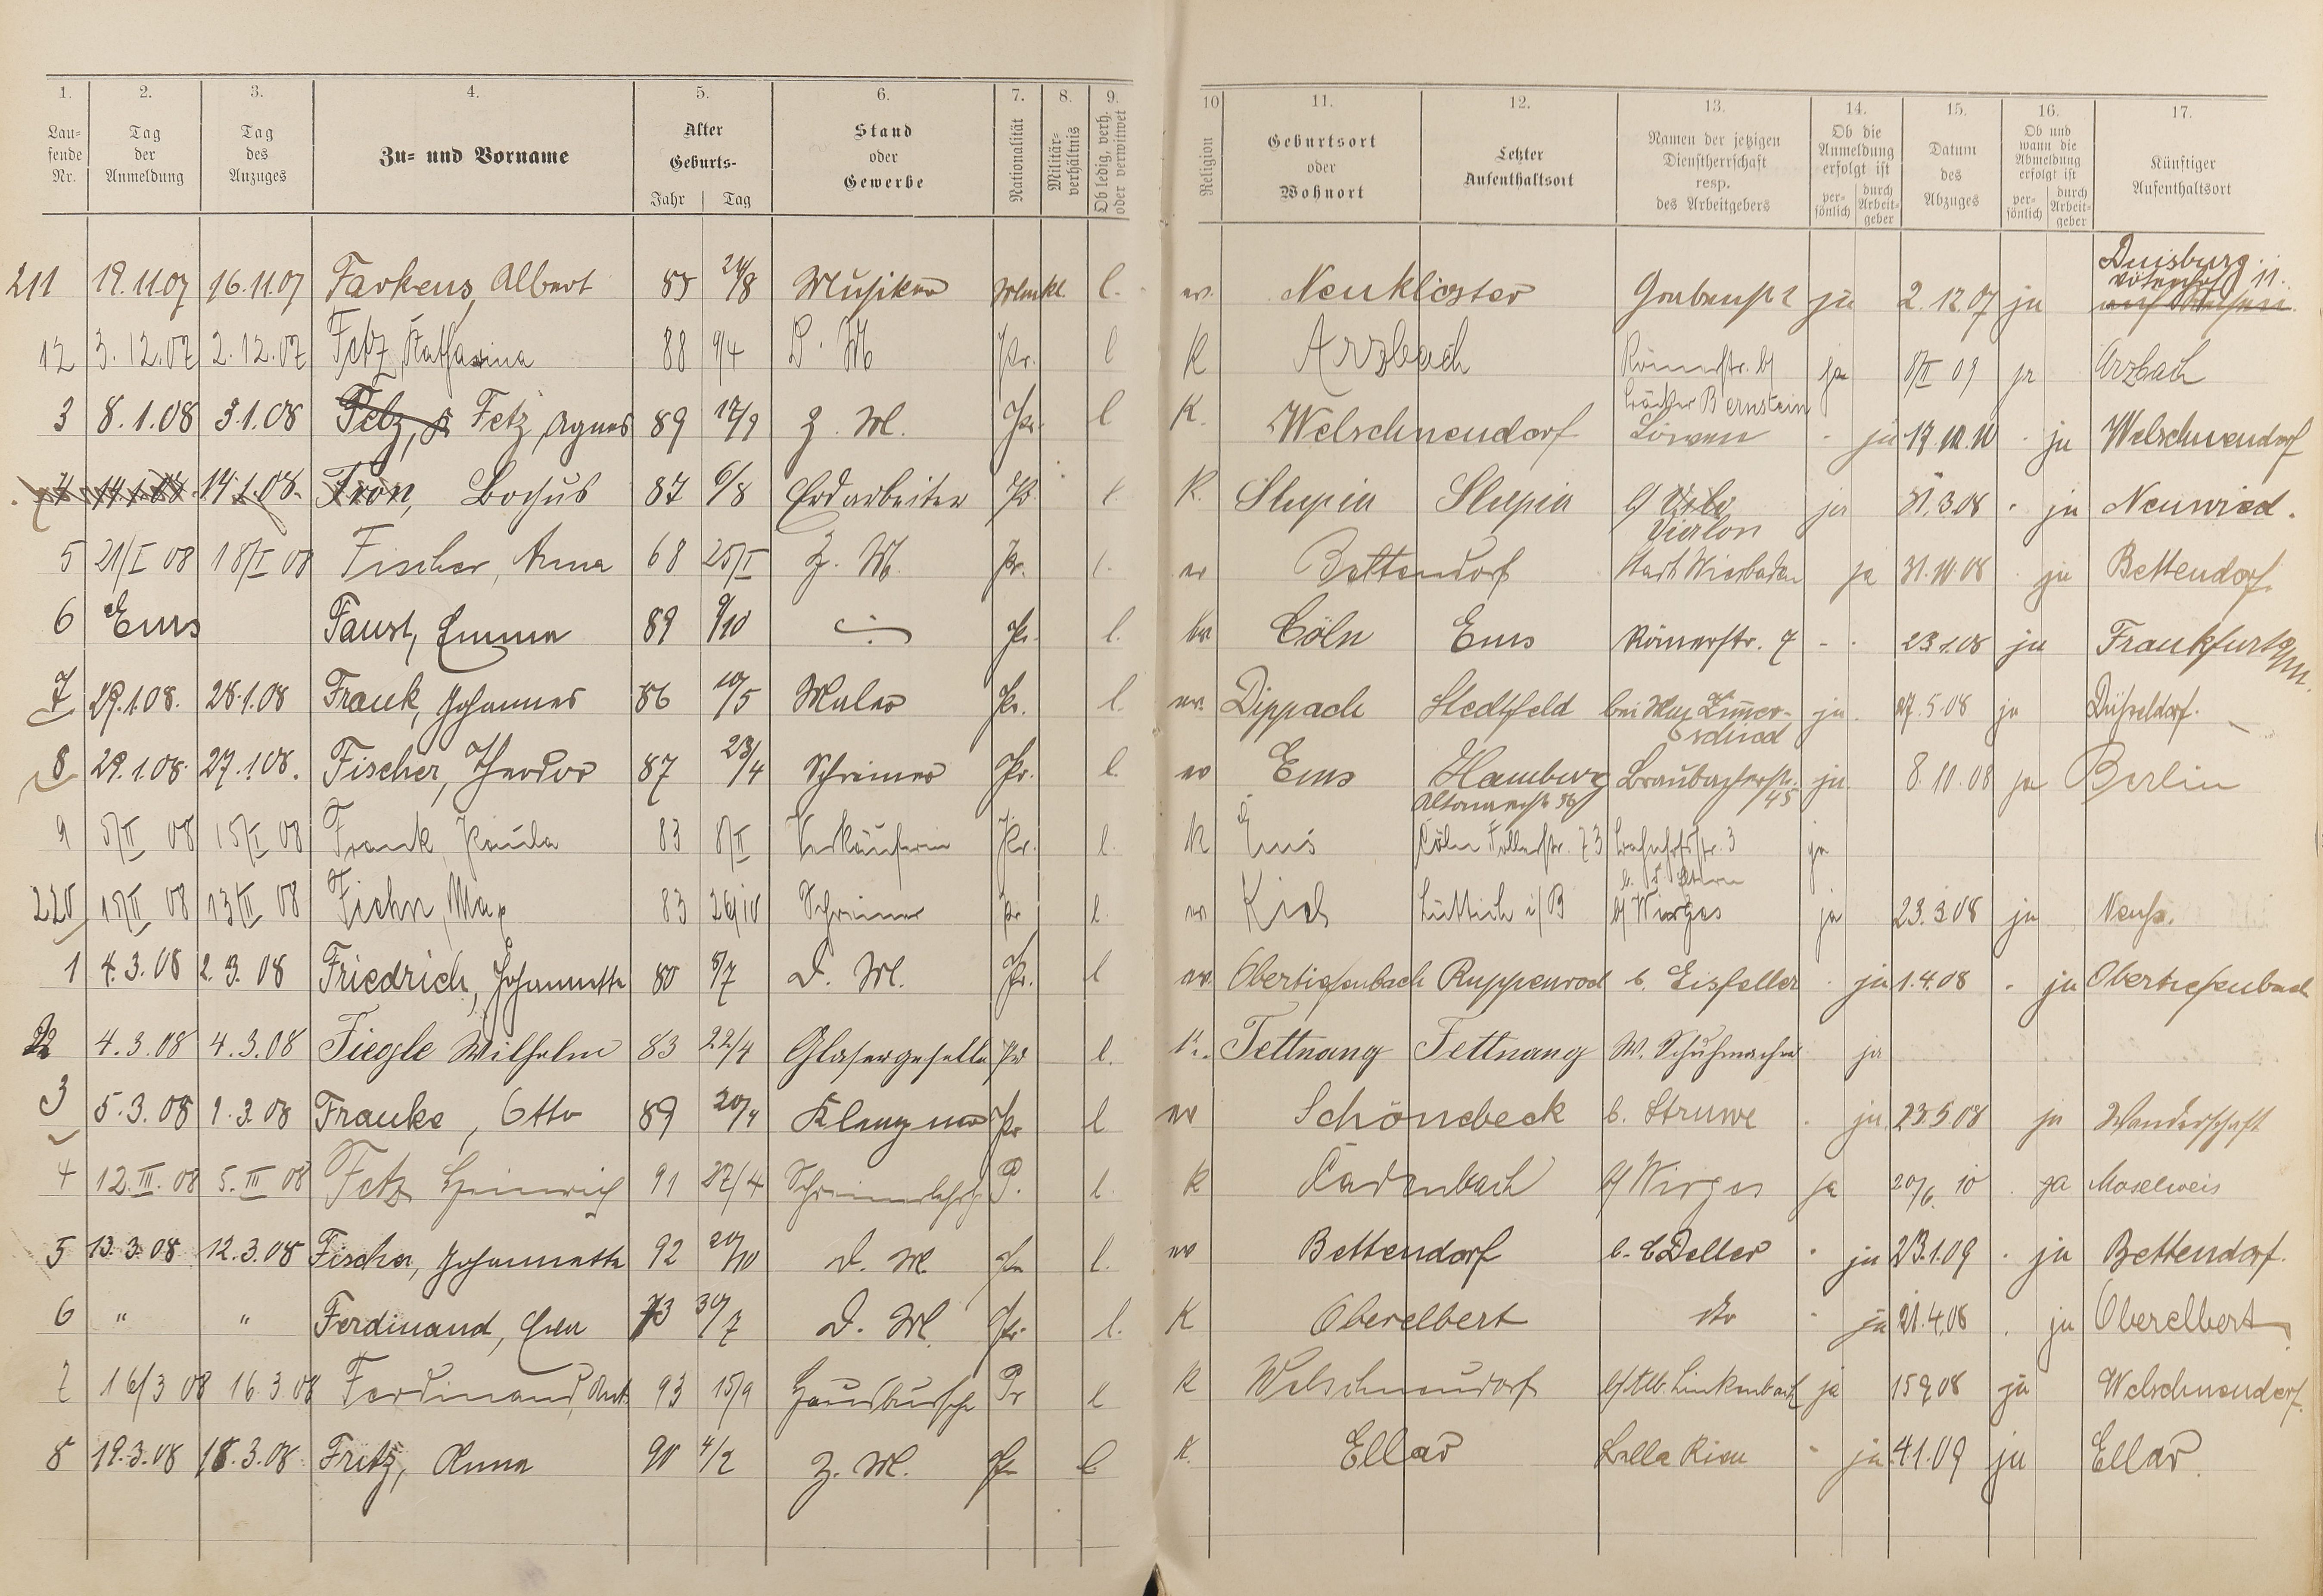 1. 2. 3. 4. 5. 6. 7. 8. 9. 10 11. 12. 13. 14. 15. 16. 17.
Lau-
fende
Nr.
Tag
der
Anmeldung
Tag
des
Anzuges
Zu- und Vorname
Alter
Geburts-
Jahr Tag
Stand
oder
Gewerbe
Nationalität
Militär-
verhältnis
Ob ledig, verh.
oder verwitwet
Religion
Geburtsort
oder
Wohnort
Letzter
Aufenthaltsort
Namen der jetzigen
Dienstherrschaft
resp.
des Arbeitgebers
Ob die
Anmeldung
erfolgt ist
per-
sönlich
durch
Arbeit-
geber
Datum
des
Abzuges
Ob und
wann die
Abmeldung
erfolgt ist
per-
sönlich
durch
Arbeit-
geber
Künftiger
Aufenthaltsort
Duisburg
211 19.11.07 16.11.07 Farkens, Albert 85 24/8 Musiker l. ev. Neukloster Grabenstr ja 2.12.07 ja
12 3.12.07 2.12.07 Fetz Katharina 88 9/4 D. M Pr. l K Arzbach Römerstr. ja 8/II 09 ja Arzbach
Bernstein
3 8.1.08 3.1.08 Fetz Agnes 89 17/9 Z. M. Pr. l K. Welschneudorf Löwen ja 17.10.10 ja Welschneudorf
4 14.1.08 14.1.08. Fron, 87 6/8 Erdarbeiter Pr l K. Slupia Slupia ja 31.3.08 ja Neuwied.
Vierlon
5 21/I 08 18/I 08 Fischer, Anna 68 25/I Z. M. Pr. l. ev Bettendorf Stadt Wiesbaden ja 31.10.08 ja Bettendorf.
6 Ems Faust, Emma 89 9/10 Pr. l. Cöln Ems Römerstr. 7 23.1.08 ja Frankfurt a/M.
7 29.1.08. 28.1.08 Frank, Johannes 86 10/5 Maler Pr. l. ev. Dippach Stedtfeld bei Max Zimer- ja 27.5.08 ja Düsseldorf.
schied
8 29.1.08. 27.1.08. Fischer, Theodor 87 23/4 Schreiner Pr. l. ev Ems Hamburg Braubacherstr. ja 8.10.08 ja Berlin
45
9 5/II 08 15/I 08 Frank, Paula 83 8/II Verkäuferin Pr. l. K Ems Cöln 73 Bahnhofstr. 3 ja
220 15/II 08 13/II 08 Fiehn, Max 83 26/10 Schreiner Pr l. ev Kiel Lüttich i/B b/ Wirges ja 23.3.08 ja Neuss.
1 4.3.08 2.3.08 Friedrich, Johannette 80 5/7 D. M. Pr. l ev. Obertiefenbach Ruppenrod b. Eisfeller ja 1.4.08 ja Obertiefenbach
22 4.3.08 4.3.08 Fiegle Wilhelm 83 22/4 Glasergeselle Pr l. K. Tettnang Tettnang W. Schuhmacher ja
3 5.3.08 1.3.08 Franke, Otto 89 20/4 Klempner Pr l ev Schönebeck b. Struwe ja 23.5.08 ja Wanderschaft
4 12.III.08 5.III 08 Fetz Heinrich 91 27/4 Schreinerlehrlg P. l. K Cadenbach b/ Wirges ja 20/6. 10 ja Moselweis
5 13.3.08 12.3.08 Fischer, Johannette 92 20/10 D. M. Pr l. ev Bettendorf b. E Deller ja 23.1.09 ja Bettendorf.
6 " " Ferdinand, Eva 73 30/7 D. M. Pr. l. K Oberelbert dto ja 21.4.08 ja Oberelbert
7 16/3 08 16.3.08 Ferdinand, 93 15/9 Hausbursche Pr l K Welschneudorf b/ Alb. Linkenbach ja 15.9.08 ja Welschneudorf.
8 19.3.08 18.3.08 Fritz, Anna 90 4/2 Z. M. Pr l K. Ellar Bella Riva ja 4.1.09 ja Ellar.